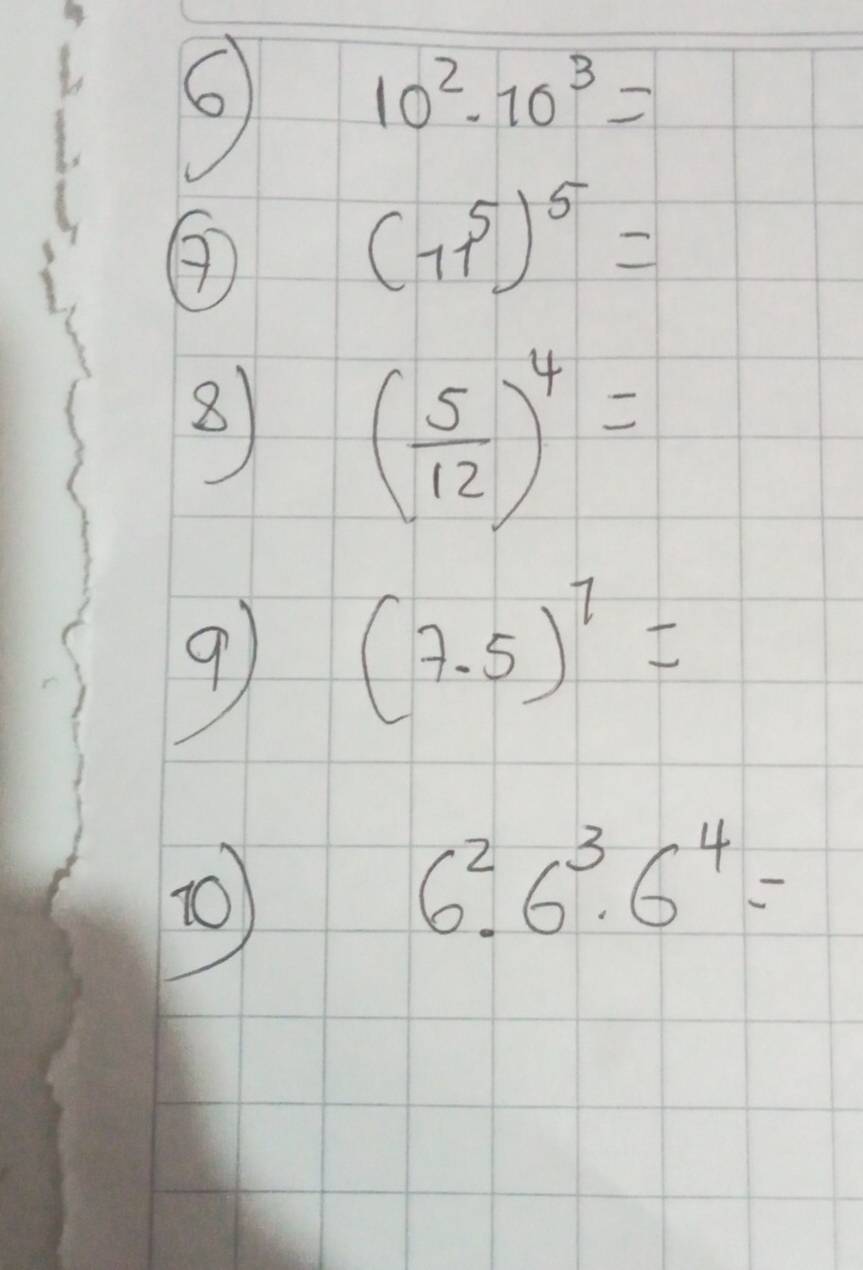 6) 10² · 10³ =
7) (11⁵)⁵ =
8) (5/12)⁴ =
9) (7 · 5)⁷ =
10) 6² · 6³ · 6⁴ =